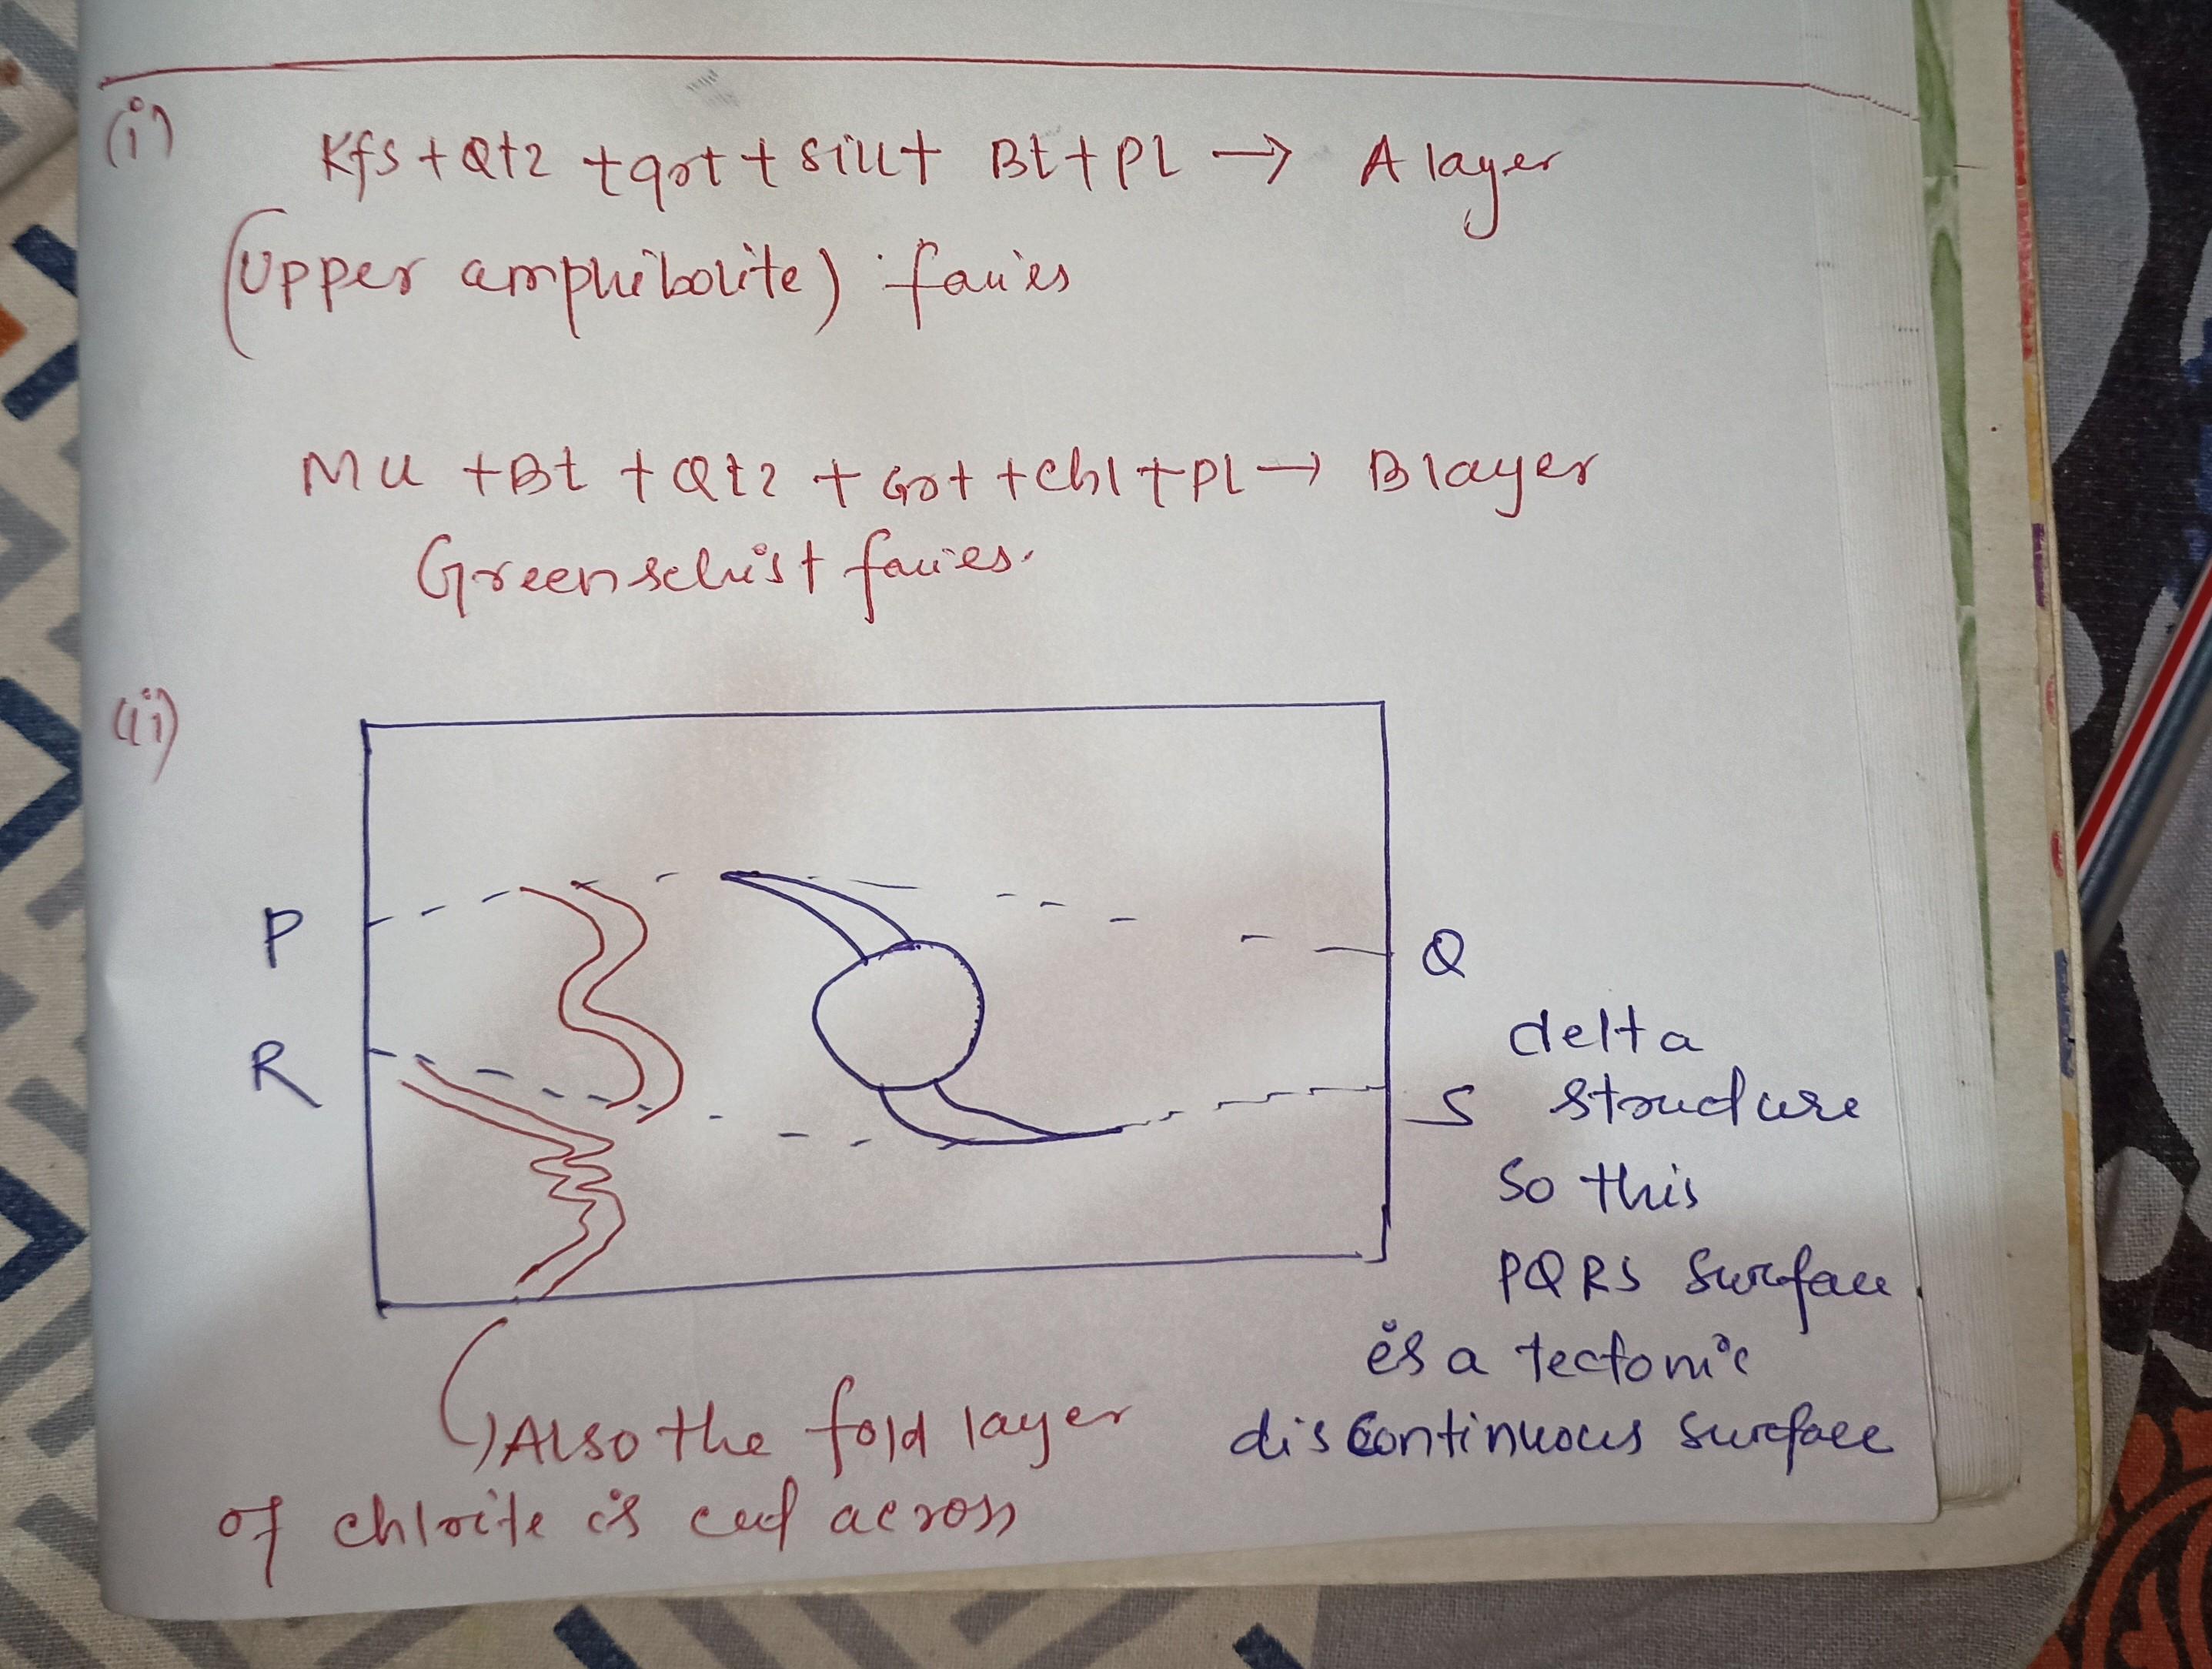 (i)
Kfs + Qtz + grt + sill + Bt + Pl → A layer
(Upper amphibolite) facies
Mu + Bt + Qtz + Grt + Chl + Pl → B layer
Greenschist facies.
(ii)
P
Q
R
S
delta
structure
So this
PQRS Surface
is a tectonic
discontinuous surface
Also the fold layer
of chlorite is cut across